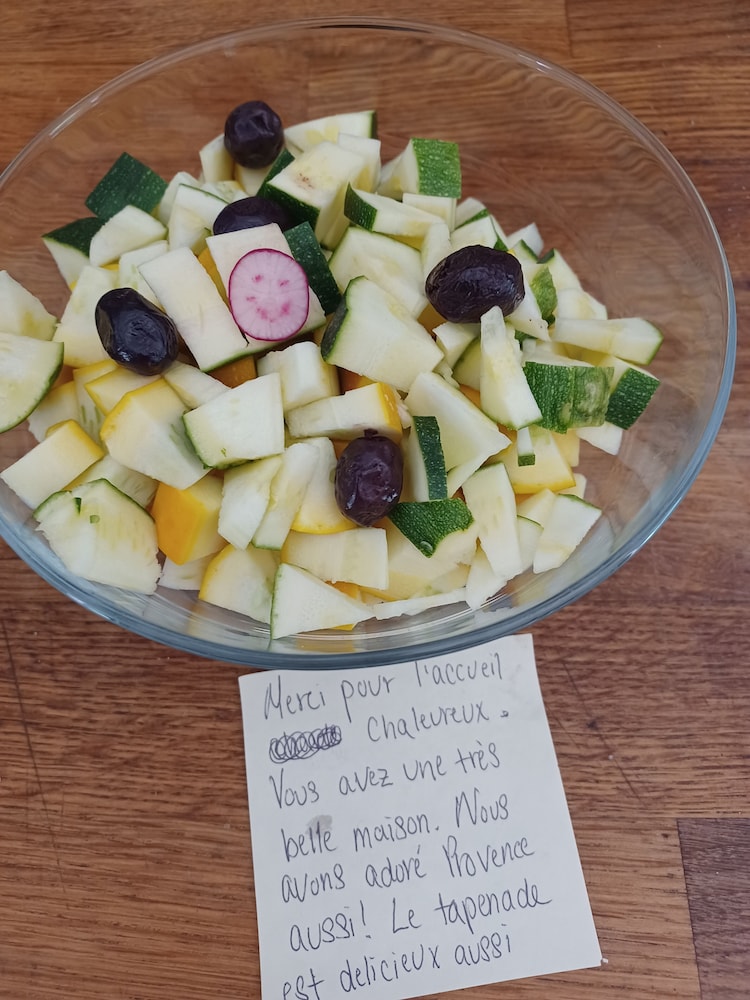 Merci pour l'accueil
Chaleureux.
Vous avez une très
belle maison. Nous
avons adoré Provence
aussi! Le tapenade
est delicieux aussi